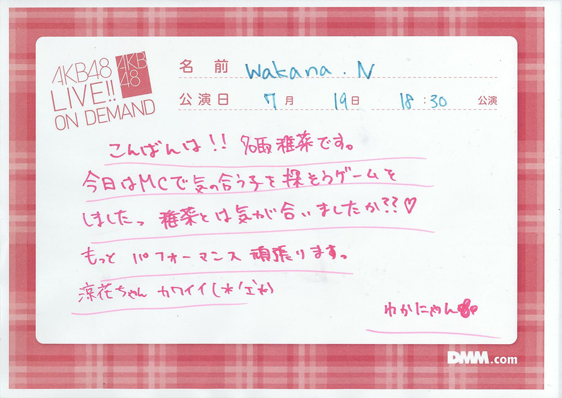 AKB48
LIVE!!
ON DEMAND
AKB
48
名前 Wakana . N
公演日 7月 19日 18:30 公演
こんばんは!! 名取稚菜です。
今日はMCで気の合う子を探そうゲームを
しましたっ 稚菜とは気が合いましたか??♡
もっと パフォーマンス 頑張ります。
涼花ちゃん カワイイ
わかにゃん
DMM.com